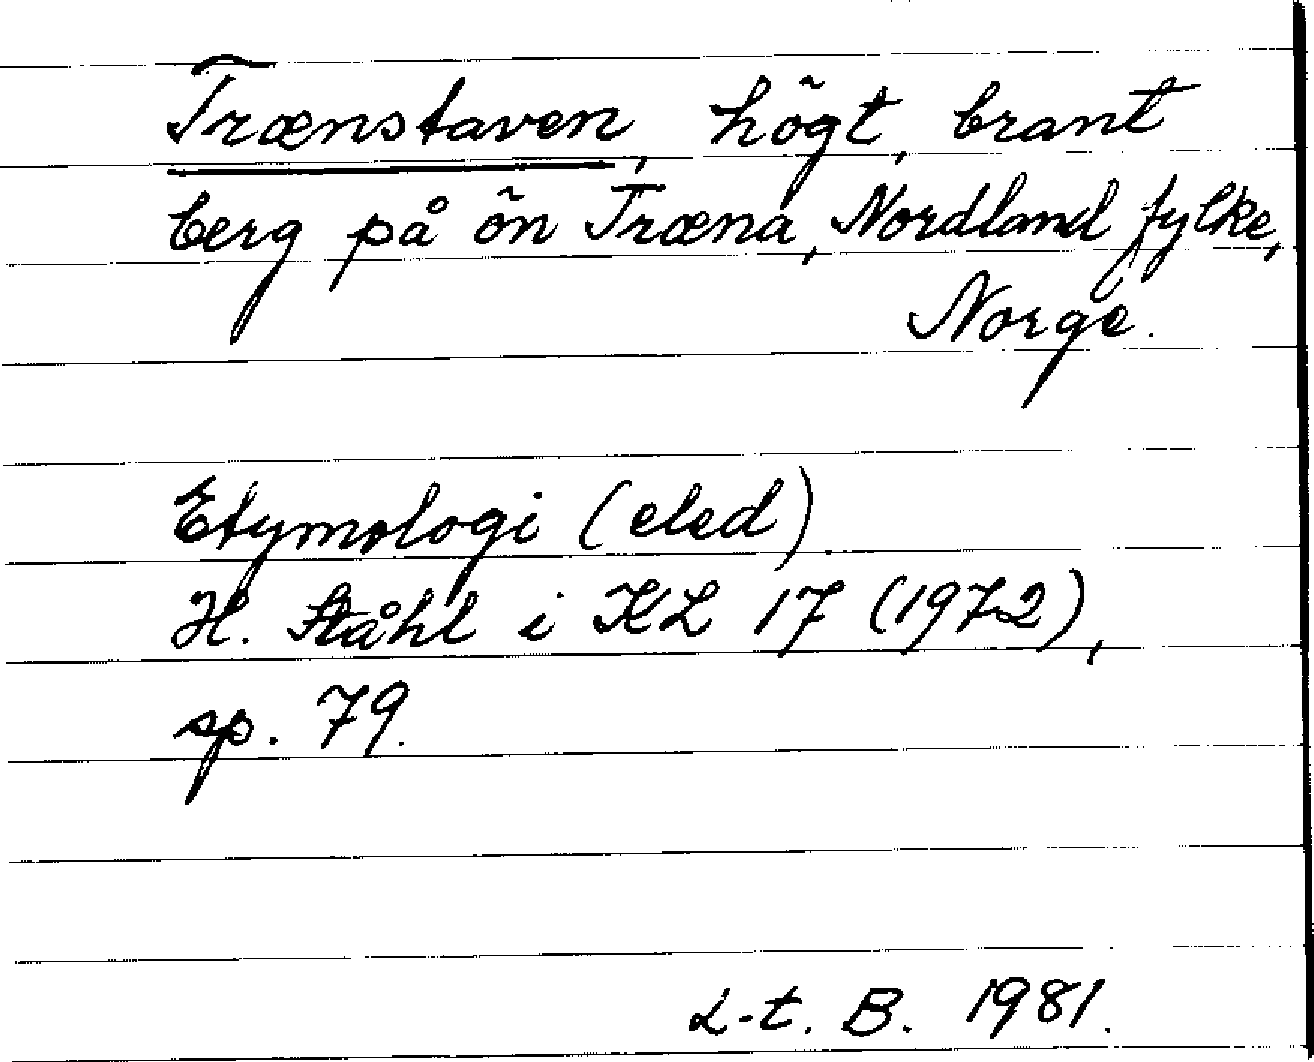 Trænstaven, högt, brant
berg på ön Træna, Nordland fylke,
Norge.
Etymologi (eled).
H. Ståhl i KL 17 (1972),
sp. 79.
L-t. B. 1981.